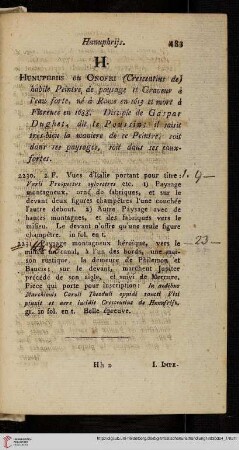 Honuphrijs. 483
H.
HUNUPHRIIS ou ONOFRI (Crescentius de)
habile Peintre, de paysage et Graveur à
l'eau forte, né à Rome en 1613 et mort à
Florence en 1655. Disciple de Gaspar
Dughet, dit le Poussin; il saisit
très-bien la maniere de ce Peintre, soit
dans ses paysages, soit dans ses eaux-
fortes.
2230. 2 F. Vues d'Italie portant pour titre:
Varii Prospectus sylvestres etc. 1) Paysage
montagneux, orné de fabriques, et sur le
devant deux figures champêtres l'une couchée
l'autre debout. 2) Autre Paysage avec de
hautes montagnes, et des fabriques vers le
milieu. Le devant n'offre qu'une seule figure
champêtre. in fol. en t.
Paysage montagneux héroïque, vers le
milieu un canal, à l'un des bords, une mai-
son rustique. la demeure de Philemon et
Baucis; sur le devant, marchent Jupiter
précédé de son aigle, et suivi de Mercure.
Piece qui porte pour inscription: In aedibus
Marchionis Caroli Theoduli
pinxit et aere incidit Crescentius de Honufriis,
gr. in fol. en t. Belle épreuve.
23
Hh 2
I. INTE-